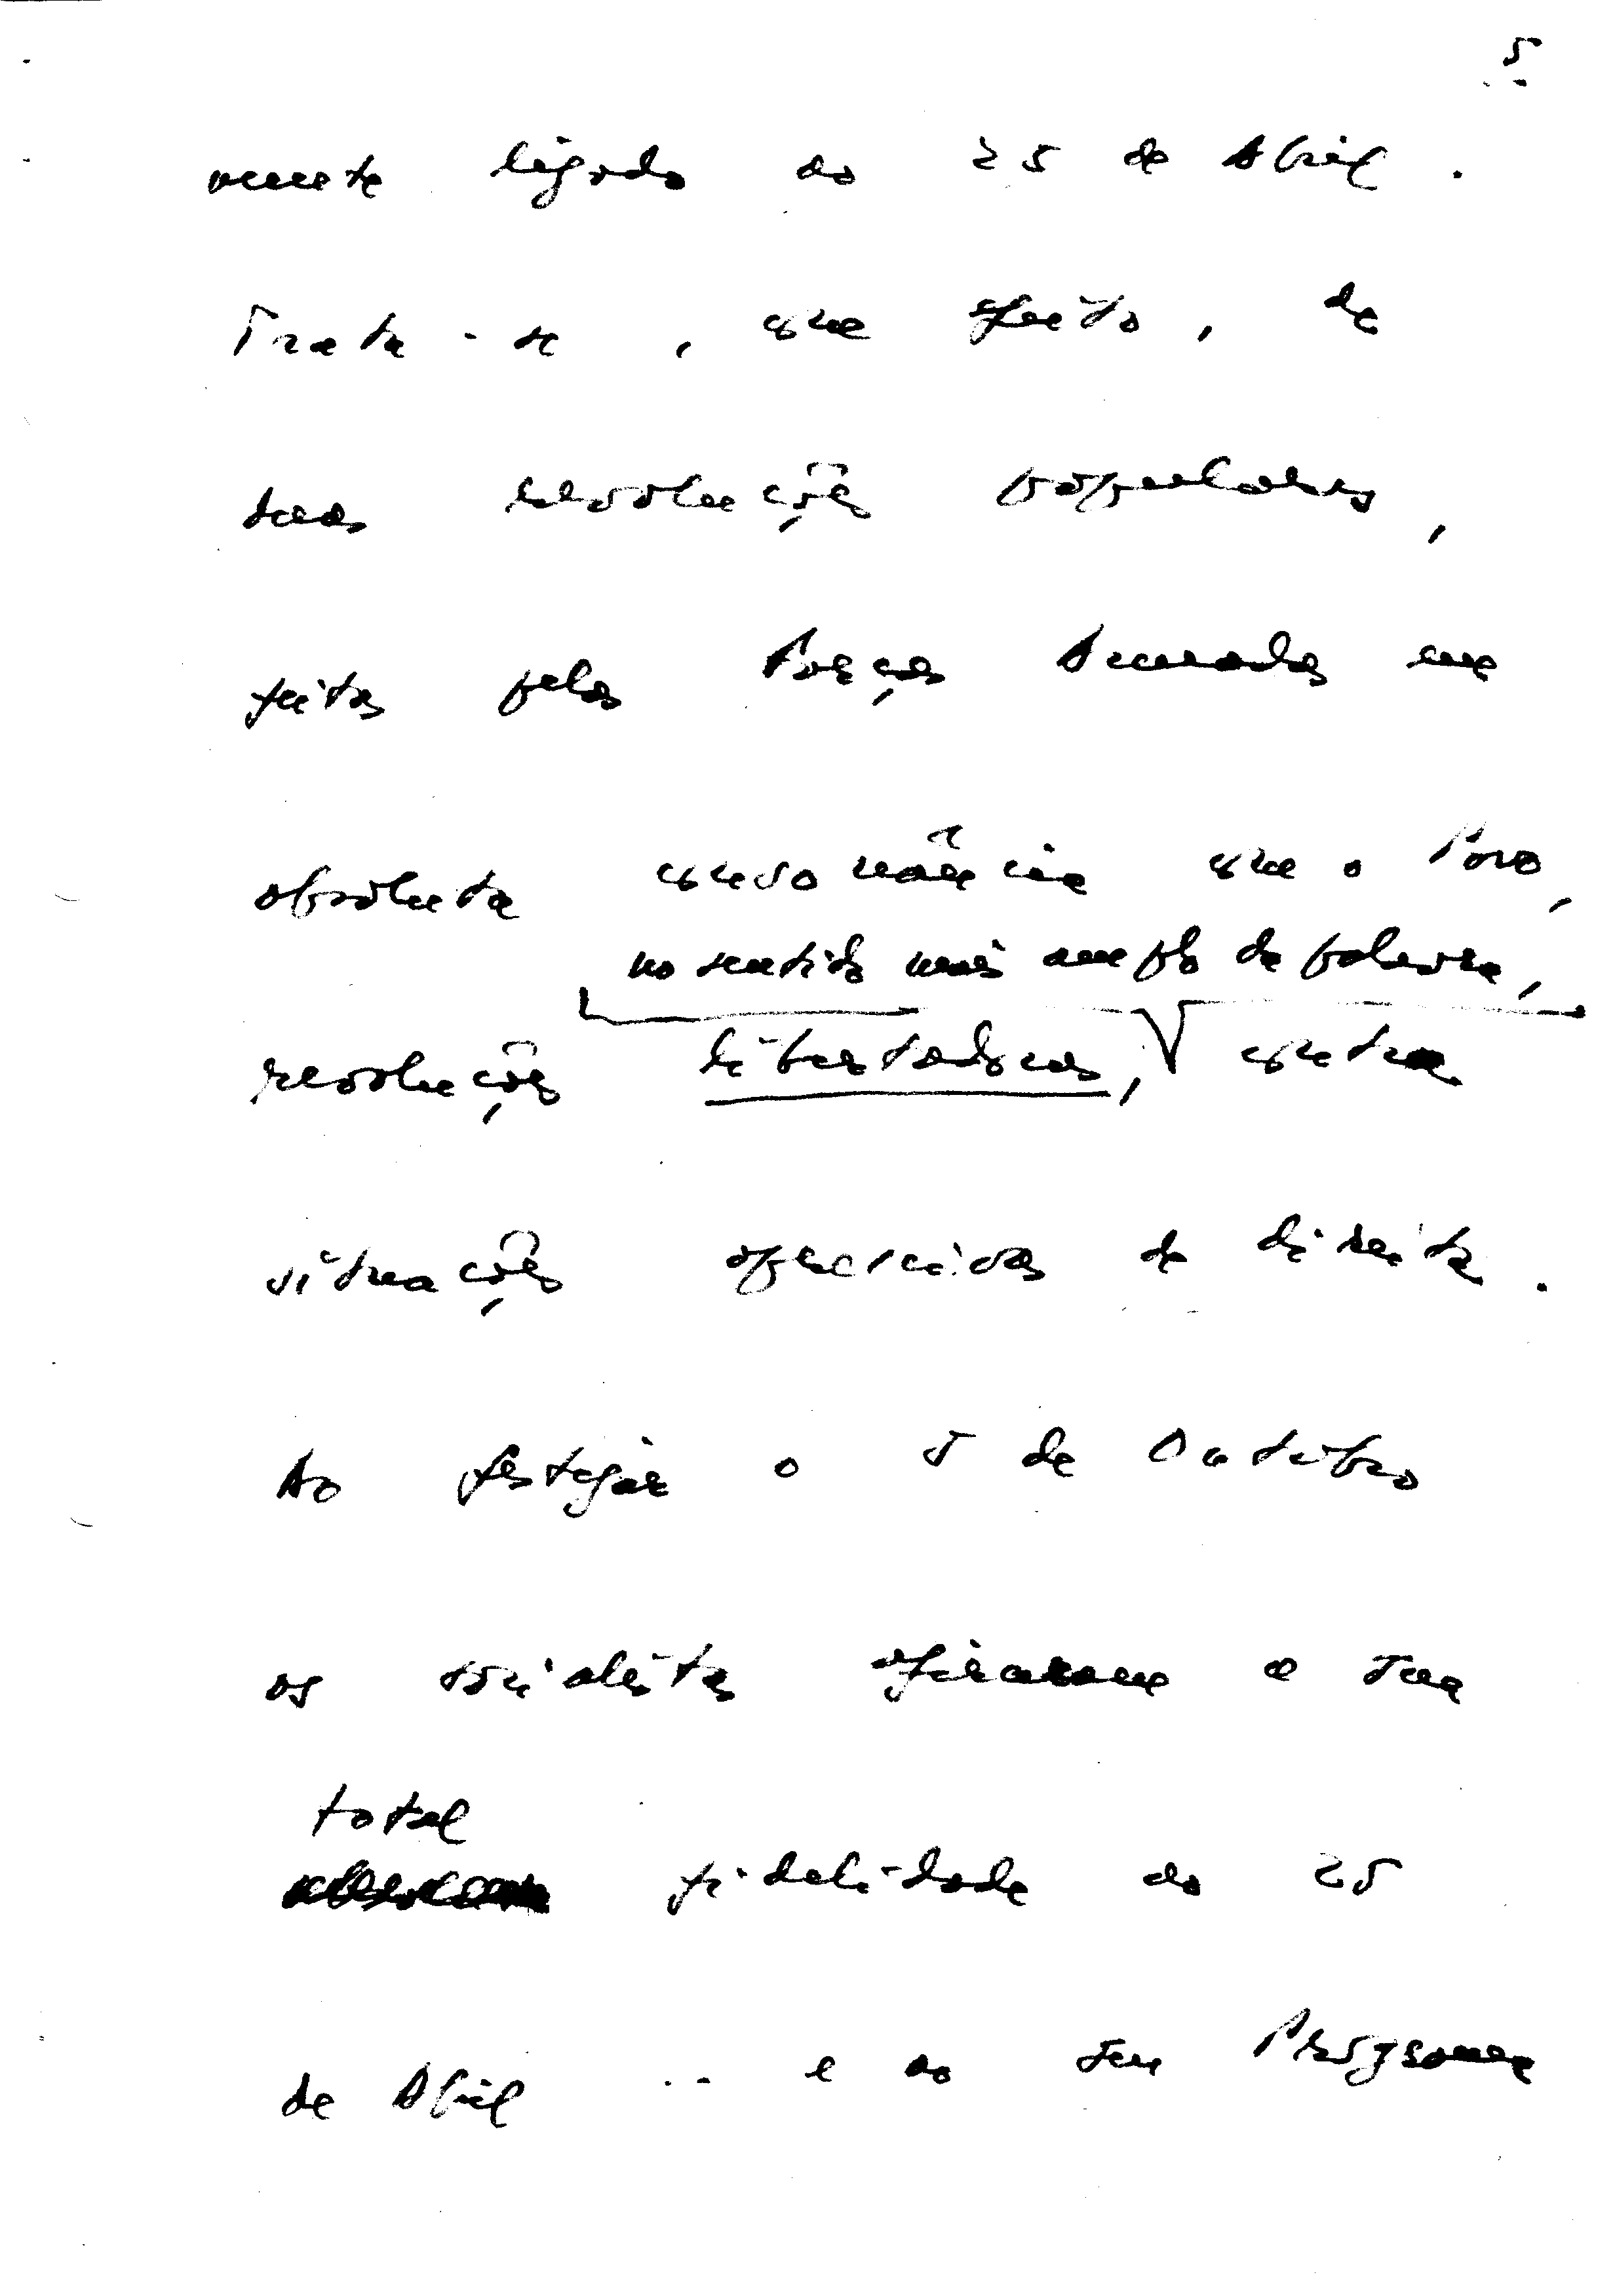 5
mente ligado ao 25 de Abril.
Trata-se, com efeito, de
duas revoluções populares,
feitas pelas Forças Armadas em
absoluta consonância com o Povo,
no sentido mais amplo da palavra,
revoluções libertadoras, contra
situações opressivas de direita.
Ao festejar o 5 de Outubro
os socialistas afirmam a sua
total
fidelidade ao 25
de Abril -- e ao seu Programa